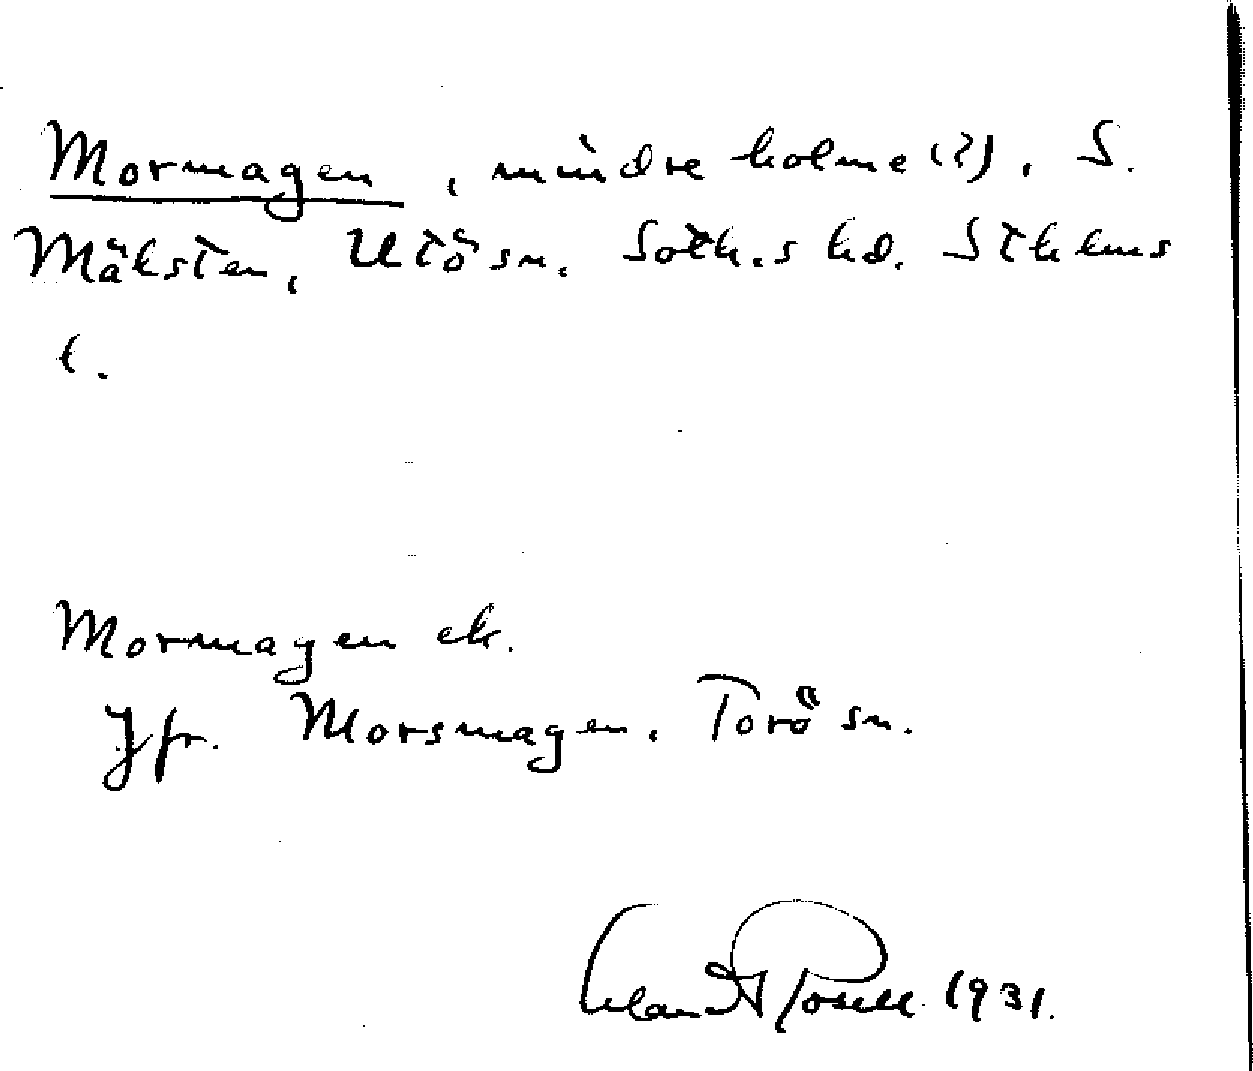 Mormagen, mindre holme (?), S.
Mälsten, Utö sn. Soth.s hd. Sthlms
l.
Mormagen ek.
Jfr. Morsmagen, Torö sn.
Erland Rosell 1931.